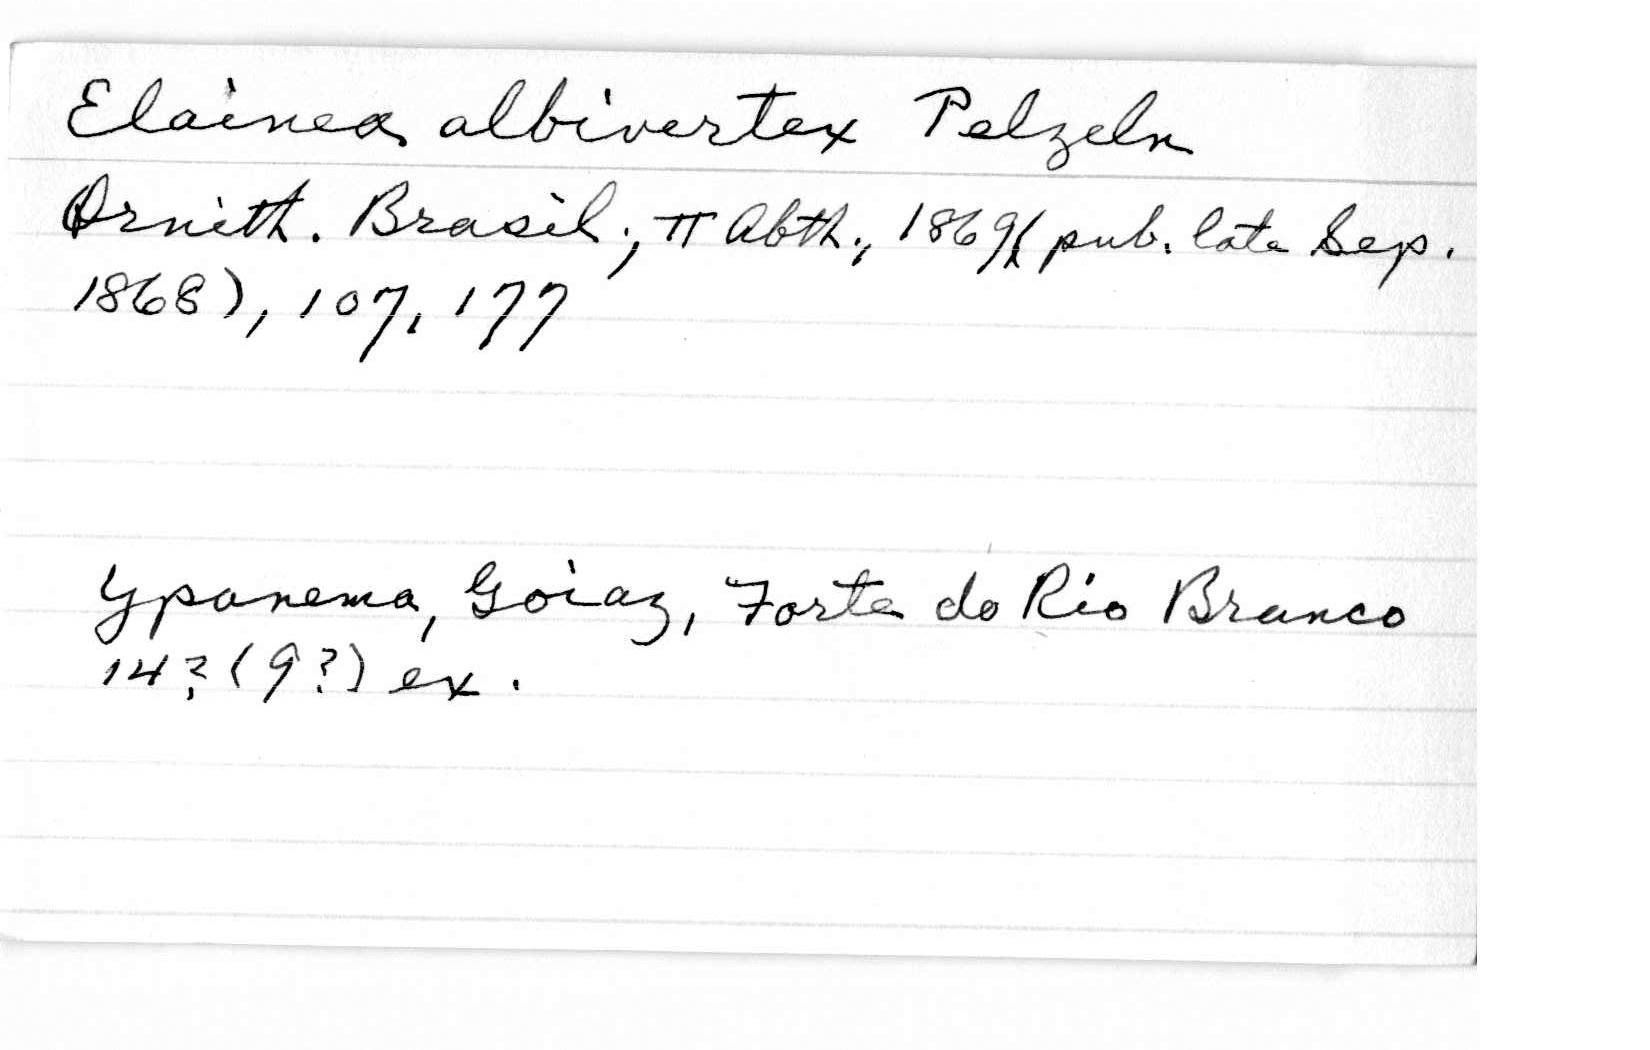 Elainea albivertex Pelzeln
Ornith. Brasil., II Abth., 1869 (pub. late Sep.
1868), 107, 177
Ypanema, Goiaz, Forte do Rio Branco
14? (9?) ex.